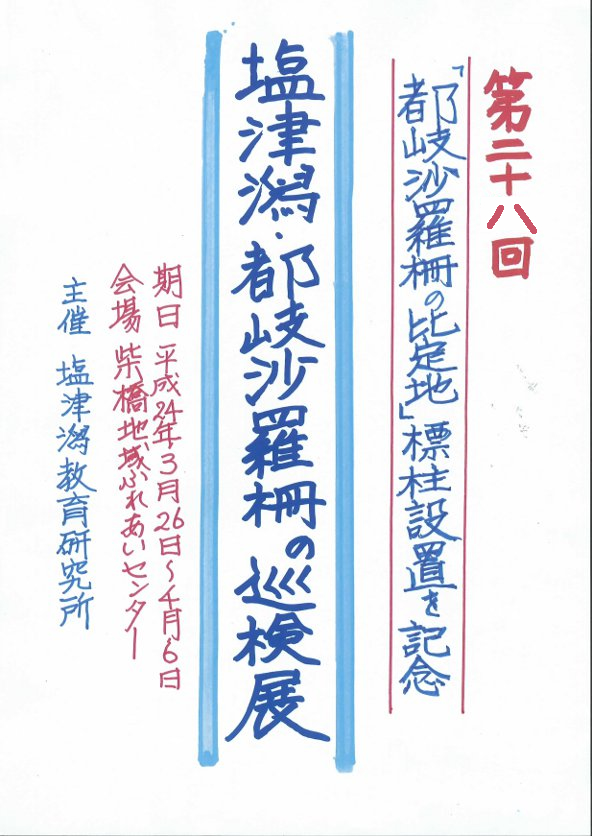 第二十八回
「都岐沙羅柵の比定地」標柱設置を記念
塩津潟・都岐沙羅柵の巡検展
期日 平成24年3月26日~4月6日
会場 柴橋地域ふれあいセンター
主催 塩津潟教育研究所